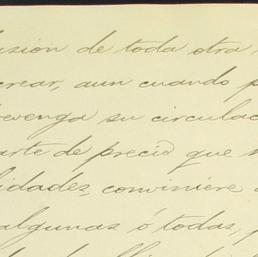 usion de toda otra
crear, aun cuando p
evenga su circulac
arte de precio que
lidades, conviniere
algunas ó todas,